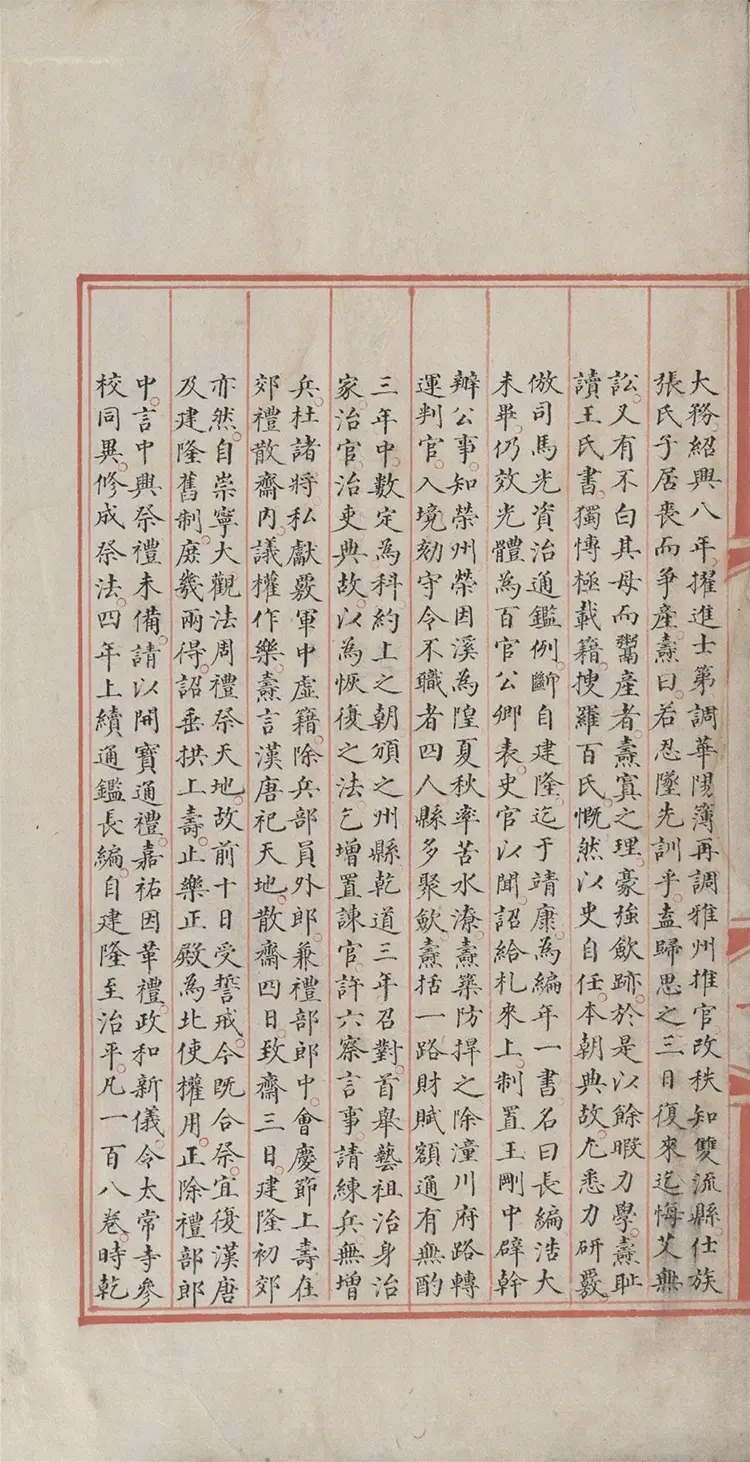 大務紹興八年擢進士第調華陽簿再調雅州推官改秩知雙流縣仕族
張氏子居喪而爭產燾曰若忍墜先訓乎盍歸思之三日復來迄悔艾無
訟又有不白其母而鬻產者燾寘之理豪強歛跡於是以餘暇力學燾耻
讀王氏書獨愽極載籍搜羅百氏慨然以史自任本朝典故尤悉力研覈
倣司馬光資治通鑑例斷自建隆迄于靖康為編年一書名曰長編浩大
未畢仍效光體為百官公卿表史官以聞詔給札來上制置王剛中辟幹
辦公事知榮州榮因溪為隍夏秋率苦水潦燾築防捍之除潼川府路轉
運判官入境劾守令不職者四人縣多聚歛燾括一路財賦額通有無酌
三年中數定為科約上之朝頒之州縣乾道三年召對首舉藝祖治身治
家治官治吏典故以為恢復之法乞增置諫官許六察言事請練兵無增
兵杜諸將私獻覈軍中虛籍除兵部員外郎兼禮部郎中會慶節上壽在
郊禮散齋內議權作樂燾言漢唐祀天地散齋四日致齋三日建隆初郊
亦然自崇寧大觀法周禮祭天地故前十日受誓戒今既合祭宜復漢唐
及建隆舊制庶幾兩得詔垂拱上壽止樂正殿為北使權用正除禮部郎
中言中興祭禮未備請以開寶通禮嘉祐因革禮政和新儀令太常寺參
校同異修成祭法四年上續通鑑長編自建隆至治平凡一百八卷時乾